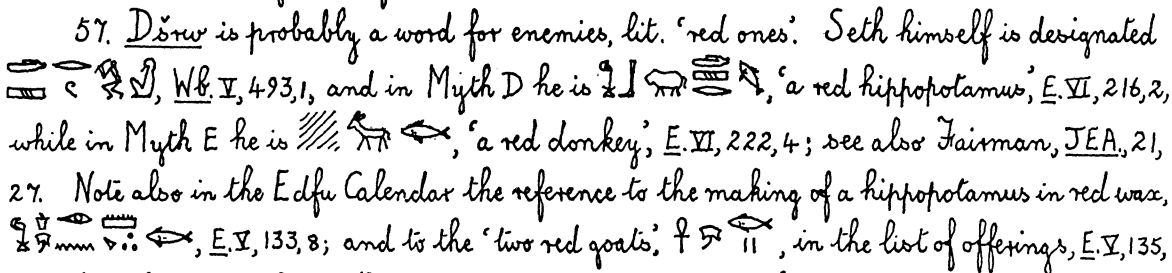 57. Dšrw is probably a word for enemies, lit. ‘red ones’. Seth himself is designated
, Wb. V, 493,1, and in Myth D he is , ‘a red hippopotamus’, E. VI, 216,2,
while in Myth E he is , ‘a red donkey’, E. VI, 222,4; see also Fairman, JEA., 21,
27. Note also in the Edfu Calendar the reference to the making of a hippopotamus in red wax,
, E. V, 133,8; and to the ‘two red goats’, , in the list of offerings, E. V, 135,